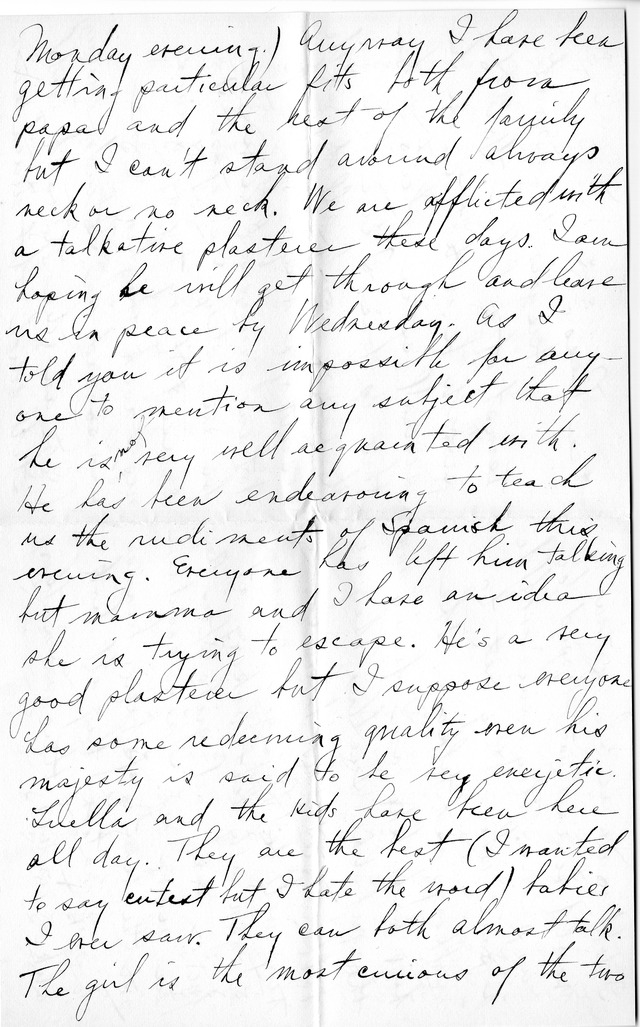 Monday evening.) Anyway I have been
getting particular fits both from
papa and the rest of the family
but I can't stand around always
neck or no neck. We are afflicted with
a talkative plasterer these days. I am
hoping he will get through and leave
us in peace by Wednesday. As I
told you it is impossible for any-
one to mention any subject that
he is not very well acquainted with.
He has been endeavoring to teach
us the rudiments of Spanish this
evening. Everyone has left him talking
but mamma and I have an idea
she is trying to escape. He's a very
good plasterer but I suppose everyone
has some redeeming quality even his
majesty is said to be very energetic.
Luella and the kids have been here
all day. They are the best (I wanted
to say cutest but I hate the word) babies
I ever saw. They can both almost talk.
The girl is the most curious of the two